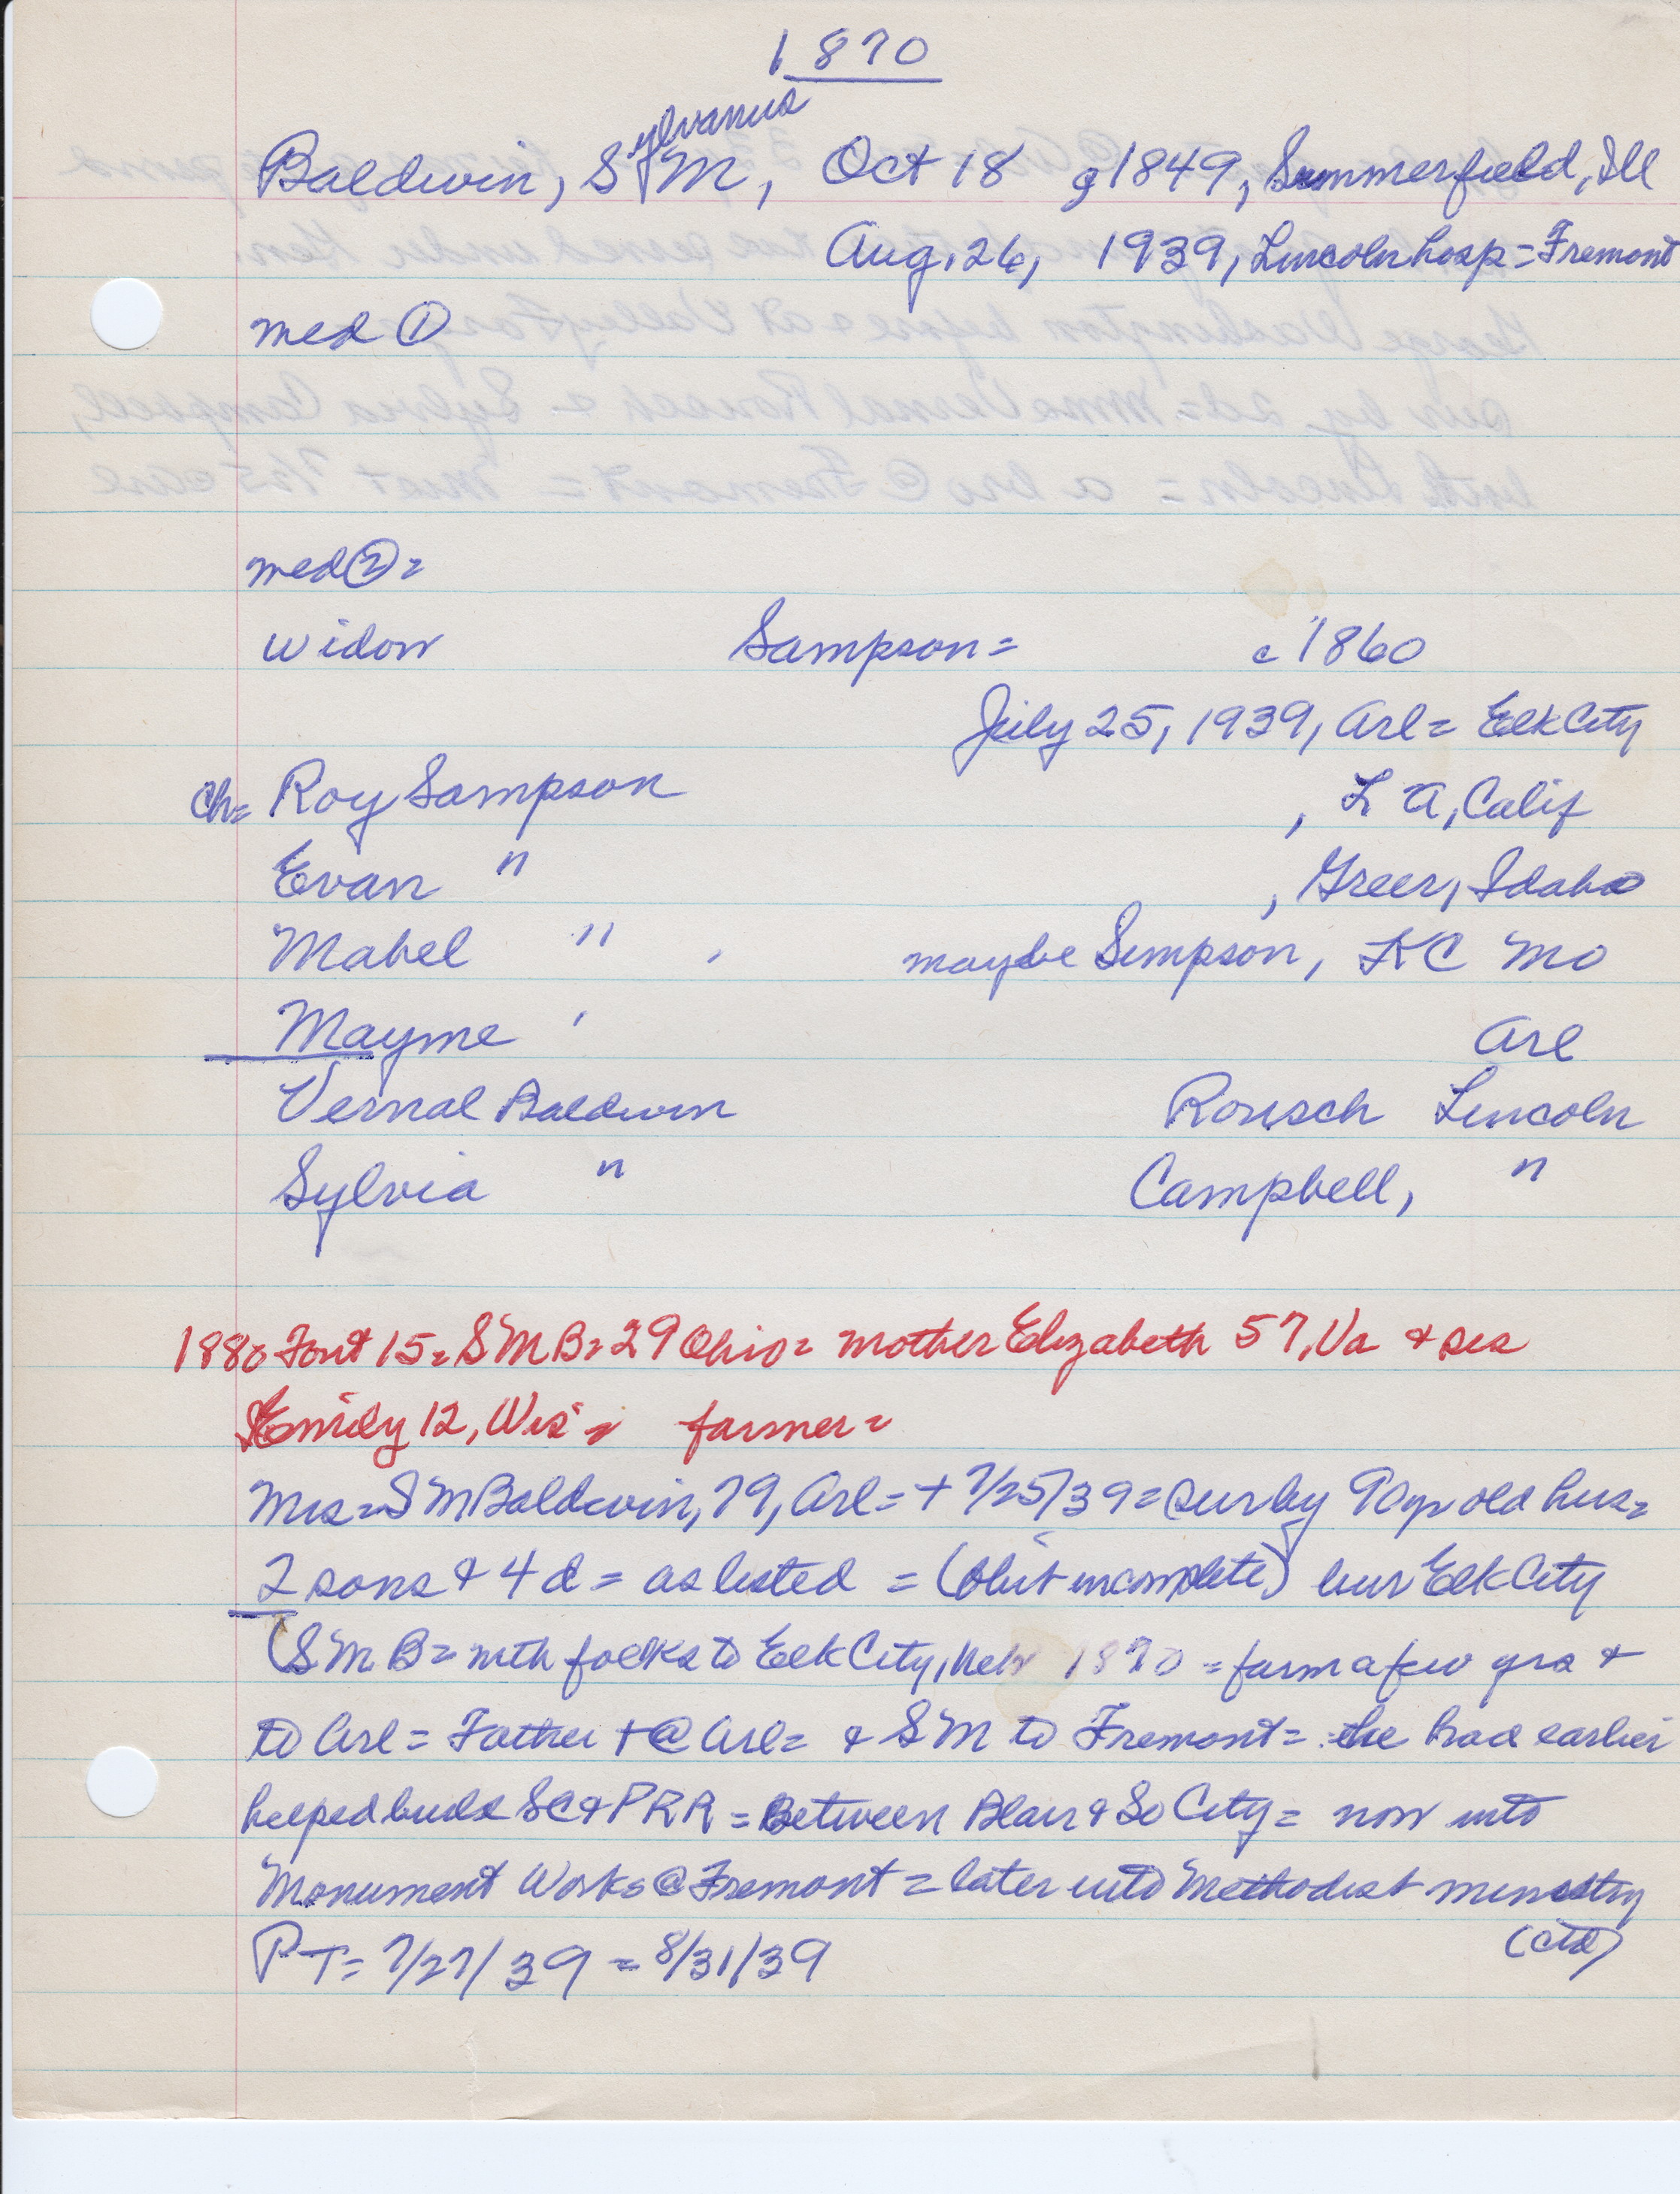 1870
Sylvanus
Baldwin, S M, Oct 18 1849, Summerfield, Ill
Aug. 26, 1939, Lincoln hosp = Fremont
med ①
med ② =
widow Sampson = c 1860
July 25, 1939, Arl = Elk City
Ch = Roy Sampson , L A, Calif
Evan " , Greer, Idaho
Mabel " , maybe Simpson, KC Mo
Mayme ' Arl
Vernal Baldwin Rousch Lincoln
Sylvia " Campbell, "
1880 Font 15 = S M B = 29 Ohio = mother Elizabeth 57, Va & sis
Emily 12, Wis = farmer =
Mrs = S M Baldwin, 79, Arl = + 7/25/39 = sur by 90 yr old hus =
2 sons & 4 d = as listed = (Obit incomplete) bur Elk City
(S M B = with folks to Elk City, Neb 1870 = farm a few yrs &
to Arl = Father + @ Arl = & S M to Fremont = he had earlier
helped build SC & P RR = Between Blair & So City = now into
Monument Works @ Fremont = later into Methodist ministry
(ctd)
P T = 7/27/39 = 8/31/39